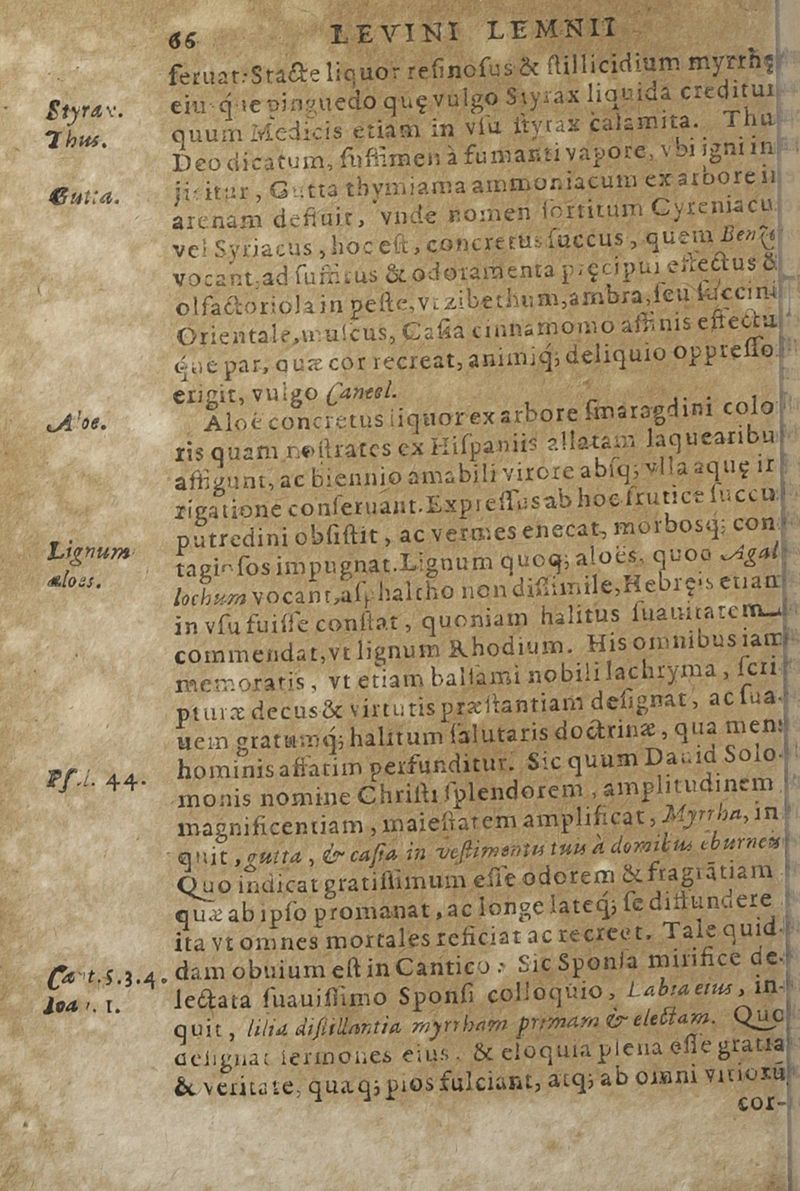 66 LEVINI LEMNII
feruat: Stacte liquor resinosus & stillicidium myrrhę
Styrax. eiusq́ue pinguedo quę vulgo Styrax liquida creditur
Thus. quum Medicis etiam in vsu styrax calamita. Thus
Deo dicatum, suffimen à fumanti vapore, vbi igni in-
Gutta. jicitur, Gutta thymiama ammoniacum ex arbore in
arenam defluit, vnde nomen sortitum Cyreniacū
vel Syriacus, hoc est, concretus succus, quem Benzi
vocant, ad suffitus & odoramenta pręcipui effectus &
olfactoriola in peste, vt zibethum, ambra, seu succinū
Orientale, muscus, Casia cinnamomo affinis effectu
que par, quæ cor recreat, animiq; deliquio oppresso
erigit, vulgo Caneel.
Aloe. Aloë concretus liquor ex arbore smaragdini colo
ris quam nostrates ex Hispaniis allatam laquearibus
affigunt, ac biennio amabili virore absq; vlla aquę ir
rigatione conseruant. Expressus ab hoc frutice succus
putredini obsistit, ac vermes enecat, morbosq; con
Lignum tagiosos impugnat. Lignum quoq; aloës, quod Agal
aloes. lochum vocant, asphaltho non dissimile, Hebręis etiam
in vsu fuisse constat, quoniam halitus suauitatem
commendat, vt lignum Rhodium. His omnibus iam
memoratis, vt etiam balsami nobili lachryma, scri
pturæ decus & virtutis præstantiam designat, ac sua-
uem gratumq; halitum salutaris doctrinæ, qua mens
Psal. 44. hominis affatim perfunditur. Sic quum Dauid Solo-
monis nomine Christi splendorem, amplitudinem
magnificentiam, maiestatem amplificat, Myrrha, in
quit, gutta, & casia in vestimentis tuis à domibus eburneis
Quo indicat gratissimum esse odorem & fragrātiam
quæ ab ipso promanat, ac longe lateq; se diffundere
ita vt omnes mortales reficiat ac recreet. Tale quid-
Cant. 5.3.4. dam obuium est in Cantico: Sic Sponsa mirifice de-
Ioa . 1. lectata suauissimo Sponsi colloquio, Labra eius, in-
quit, lilia distillantia myrrham primam & electam. Quo
designat sermones eius, & eloquia plena esse gratia
& veritate, quaq; pios fulciant, atq; ab omni vitiorū
cor-